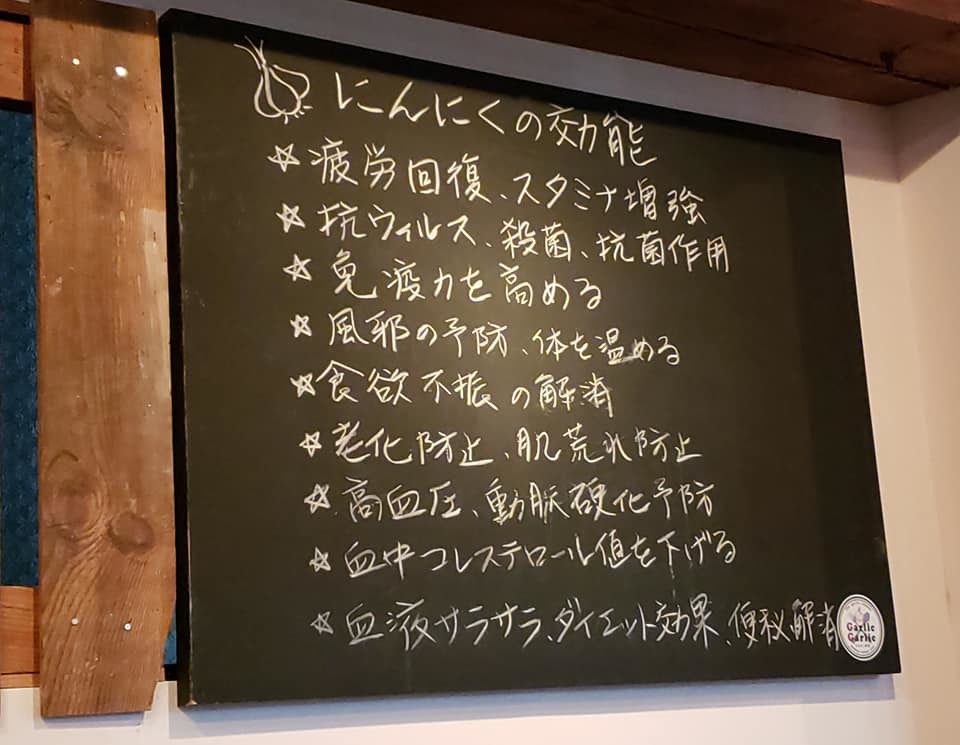 にんにくの効能
☆疲労回復、スタミナ増強
☆抗ウィルス、殺菌、抗菌作用
☆免疫力を高める
☆風邪の予防、体を温める
☆食欲不振の解消
☆老化防止、肌荒れ防止
☆高血圧、動脈硬化予防
☆血中コレステロール値を下げる
☆血液サラサラ、ダイエット効果、便秘解消
Garlic
Garlic